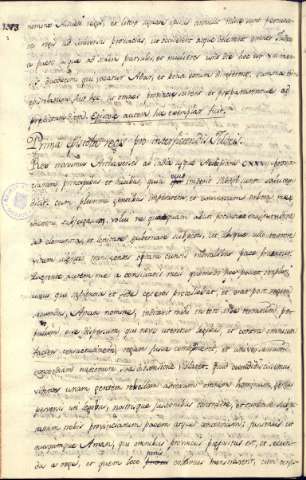 nomine Assueri regis, et litere signate ipsius annulo misse sunt per cursores
regis ad universas provincias, ut occiderent atque delerent omnes Iudeos
a puero usque ad senem parvulos, et mulieres uno die hoc est
mensis duodecimi qui vocatur Adar, et bona eorum diriperent, summa
epistolarum hec fuit, ut omnes provincie scirent et pararent se ad
predictam diem. Epistole autem hoc exemplar fuit.
Prima Epistola regis pro interficiendis Iudeis.
Rex maximus Artaxerxes ab India usque Aethiopiam CXXVII provinciarum
principibus et ducibus, qui imperio subjecti sunt salutem
dicit. cum plurimis gentibus imperarem et universum orbem mee
ditioni subjugassem, volui nequaquam abuti potentie magnitudine
sed clementia, et lenitate gubernare subjectos, ut absque ullo terrore
vitam silentio transigentes optata cunctis mortalibus pace fruerentur.
Querente autem me a consiliariis meis quomodo posset hoc impleri
unus qui sapientia et fide ceteros precellebat, et erat post regem
secundus, Aman nomine, indicavit mihi in toto orbe terrarum populum
esse dispersum, qui novis uteretur legibus, et contra omnium
gentium consuetudinem faciens regum jussa contemneret, et universarum
concordiam nationum sua dissensione violaret. quod cum didicissemus
videntes unam gentem rebellem adversus omne hominum genus
perversis uti legibus, nostrisque jussionibus contraire, et turbare
nobis provinciarum pacem atque concordiam, jussimus ut
quoscumque Aman, qui omnibus provinciis prepositus est, et secundus
a rege, et quem loco patris colimus monstraverit, cum